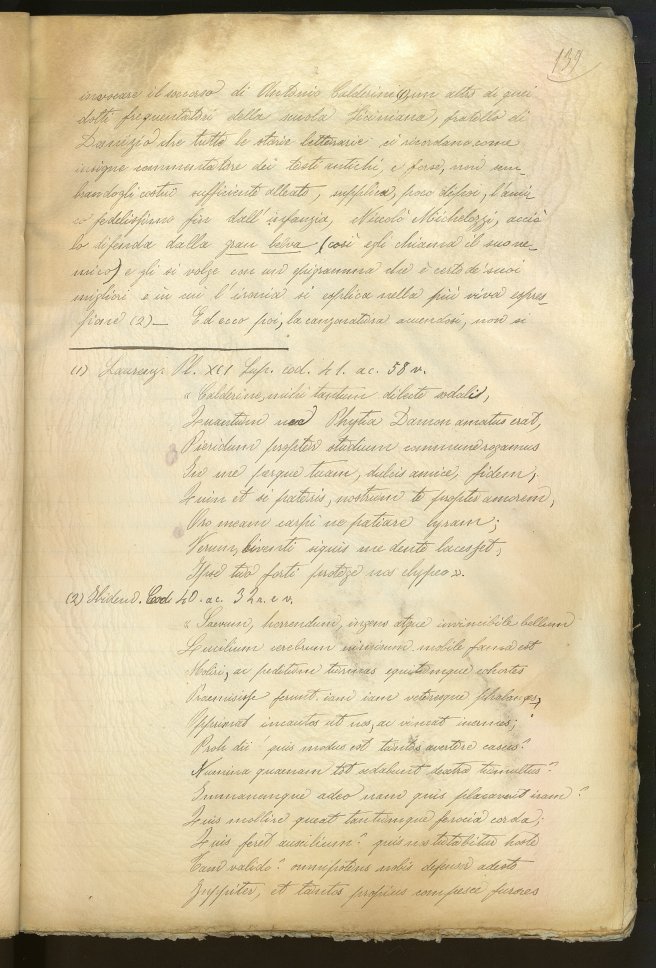 139
invocare il soccorso di Antonio Calderini (1) un altro di quei
dotti frequentatori della scuola Ficiniana, fratello di
Domizio che tutte le storie letterarie ci ricordano come
insigne commentatore dei testi antichi, e forse, non sem-
brandogli costui sufficiente alleato, supplica, poco dipoi, l'ami-
co fedelissimo fin dall'infanzia, Niccolò Michelozzi, acciò
lo difenda dalla gran belva (così egli chiama il suo ne-
mico) e gli si volge con un epigramma che è certo de' suoi
migliori e in cui l'ironia si esplica nella più viva espres-
sione (2) — Ed ecco poi, la canzonatura avendosi, non si
(1) Laurenz. Pl. XCI Sup. cod. 41. ac. 58 v.
" Calderine, mihi tantum dilecte sodalis,
Quantum nec Phytia Damon amatus erat,
Pieridum propter studium commune rogamus
En me perque tuam, dulcis amice, fidem;
Quin et si pateris, nostrum te propter amorem,
Oro meam carpi ne patiare lyram;
Verum, liventi siquis me dente lacesset,
Ipse tuo forti protege nos clypeo ".
(2) Ibidem. Cod. 40. ac. 32 r. e v.
" Saevum, horrendum, ingens atque invincibile bellum
Lucilium cerebrum mobile fama est
Moliri, ac peditum turmas equitumque cohortes
Praemisisse ferunt iam iam veteresque phalanges,
Opprimat incautos ut nos, ac vincat inermes;
Proh dii! quis modus est tantos avertere casus?
Numina quaenam tot sedabunt dextra tumultus?
Immanemque adeo nam quis placaverit iram?
Quis mollire queat tantumque ferocia corda;
Quis feret auxilium? quis nos tutabitur hoste
Tam valido? omnipotens nobis defensor adesto
Juppiter, et tantos propius compesce furores